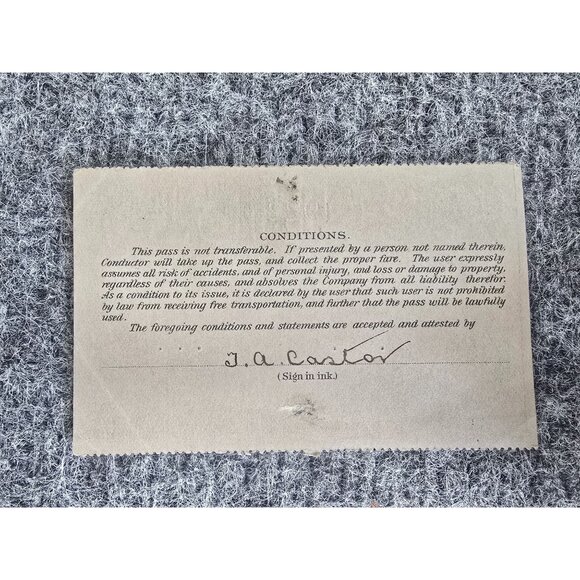 CONDITIONS.
This pass is not transferable. If presented by a person not named therein,
Conductor will take up the pass, and collect the proper fare. The user expressly
assumes all risk of accidents, and of personal injury, and loss or damage to property,
regardless of their causes, and absolves the Company from all liability therefor.
As a condition to its issue, it is declared by the user that such user is not prohibited
by law from receiving free transportation, and further that the pass will be lawfully
used.
The foregoing conditions and statements are accepted and attested by
J. A. Castor
(Sign in ink.)